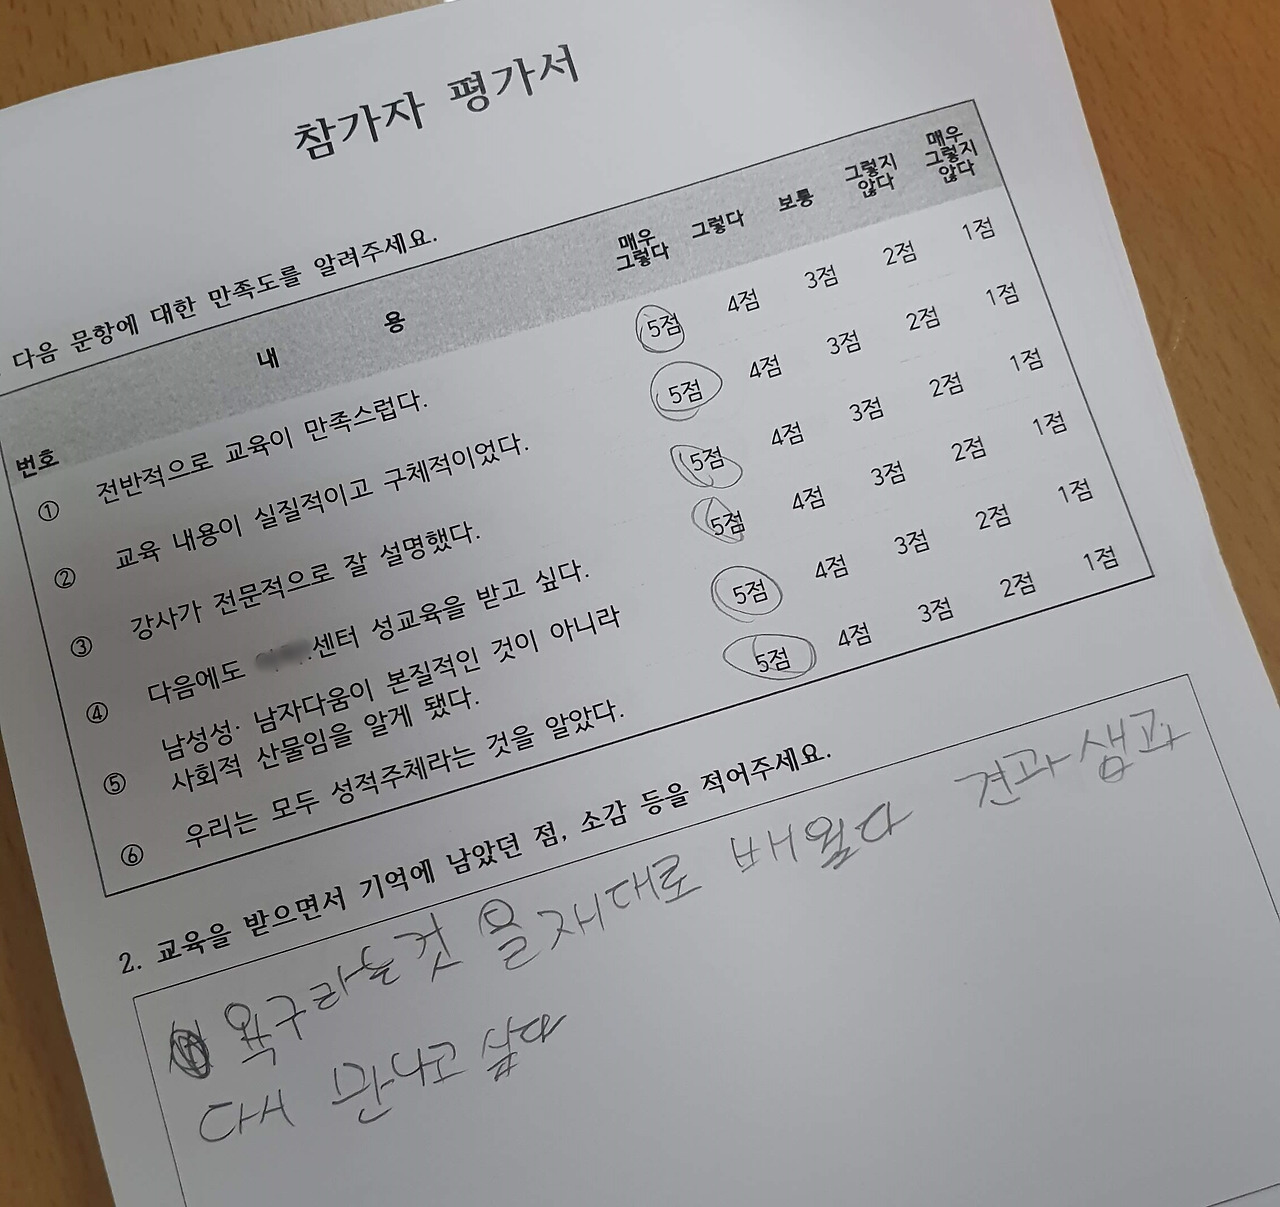 참가자 평가서
다음 문항에 대한 만족도를 알려주세요.
번호 내 용 매우 그렇다 그렇다 보통 그렇지 않다 매우 그렇지 않다
① 전반적으로 교육이 만족스럽다. 5점 4점 3점 2점 1점
② 교육 내용이 실질적이고 구체적이었다. 5점 4점 3점 2점 1점
③ 강사가 전문적으로 잘 설명했다. 5점 4점 3점 2점 1점
④ 다음에도 센터 성교육을 받고 싶다. 5점 4점 3점 2점 1점
⑤ 남성성· 남자다움이 본질적인 것이 아니라
사회적 산물임을 알게 됐다. 5점 4점 3점 2점 1점
⑥ 우리는 모두 성적주체라는 것을 알았다. 5점 4점 3점 2점 1점
2. 교육을 받으면서 기억에 남았던 점, 소감 등을 적어주세요.
욕구라는것 을 재대로 배웠다 견과샘과
다시 만나고 싶다